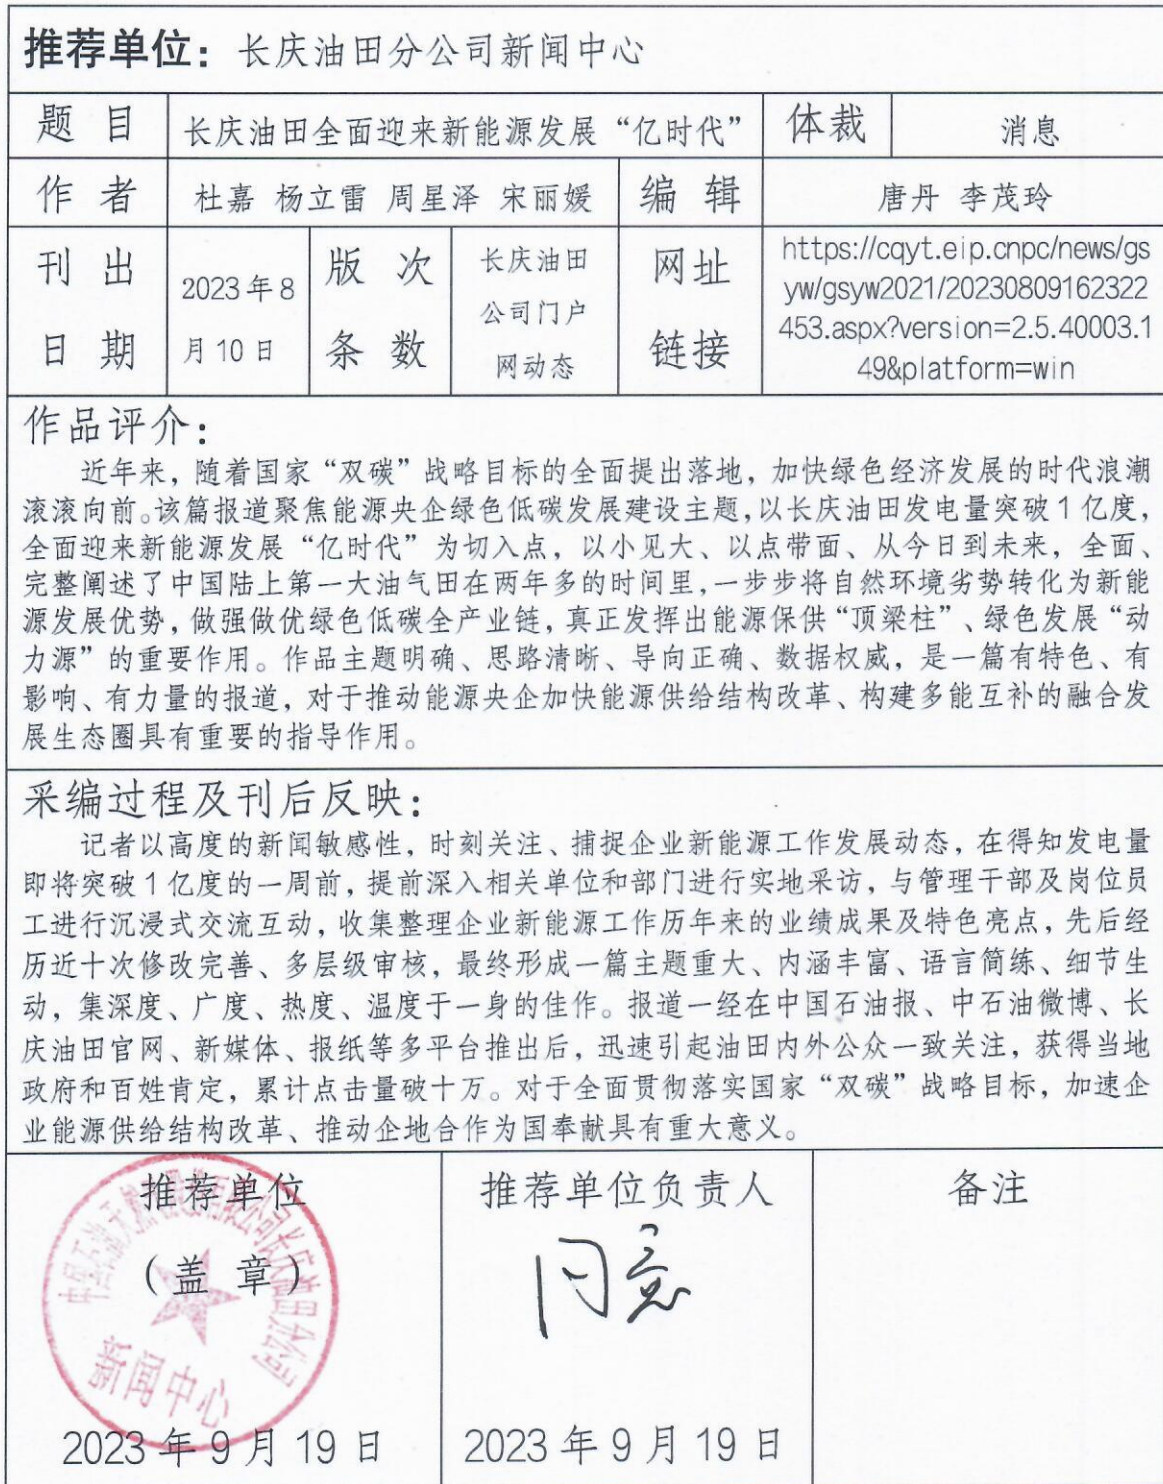 推荐单位：长庆油田分公司新闻中心
题 目
长庆油田全面迎来新能源发展“亿时代”
体裁
消息
作 者
杜嘉 杨立雷 周星泽 宋丽媛
编 辑
唐丹 李茂玲
刊 出
日 期
2023年8
月10日
版 次
条 数
长庆油田
公司门户
网动态
网址
链接
https://cqyt.eip.cnpc/news/gs
yw/gsyw2021/20230809162322
453.aspx?version=2.5.40003.1
49&platform=win
作品评介：
近年来，随着国家“双碳”战略目标的全面提出落地，加快绿色经济发展的时代浪潮
滚滚向前。该篇报道聚焦能源央企绿色低碳发展建设主题，以长庆油田发电量突破1亿度，
全面迎来新能源发展“亿时代”为切入点，以小见大、以点带面、从今日到未来，全面、
完整阐述了中国陆上第一大油气田在两年多的时间里，一步步将自然环境劣势转化为新能
源发展优势，做强做优绿色低碳全产业链，真正发挥出能源保供“顶梁柱”、绿色发展“动
力源”的重要作用。作品主题明确、思路清晰、导向正确、数据权威，是一篇有特色、有
影响、有力量的报道，对于推动能源央企加快能源供给结构改革、构建多能互补的融合发
展生态圈具有重要的指导作用。
采编过程及刊后反映：
记者以高度的新闻敏感性，时刻关注、捕捉企业新能源工作发展动态，在得知发电量
即将突破1亿度的一周前，提前深入相关单位和部门进行实地采访，与管理干部及岗位员
工进行沉浸式交流互动，收集整理企业新能源工作历年来的业绩成果及特色亮点，先后经
历近十次修改完善、多层级审核，最终形成一篇主题重大、内涵丰富、语言简练、细节生
动，集深度、广度、热度、温度于一身的佳作。报道一经在中国石油报、中石油微博、长
庆油田官网、新媒体、报纸等多平台推出后，迅速引起油田内外公众一致关注，获得当地
政府和百姓肯定，累计点击量破十万。对于全面贯彻落实国家“双碳”战略目标，加速企
业能源供给结构改革、推动企地合作为国奉献具有重大意义。
推荐单位
（盖 章）
中国石油天然气股份有限公司长庆油田分公司
新闻中心
2023年9月19日
推荐单位负责人
同意
2023年9月19日
备注